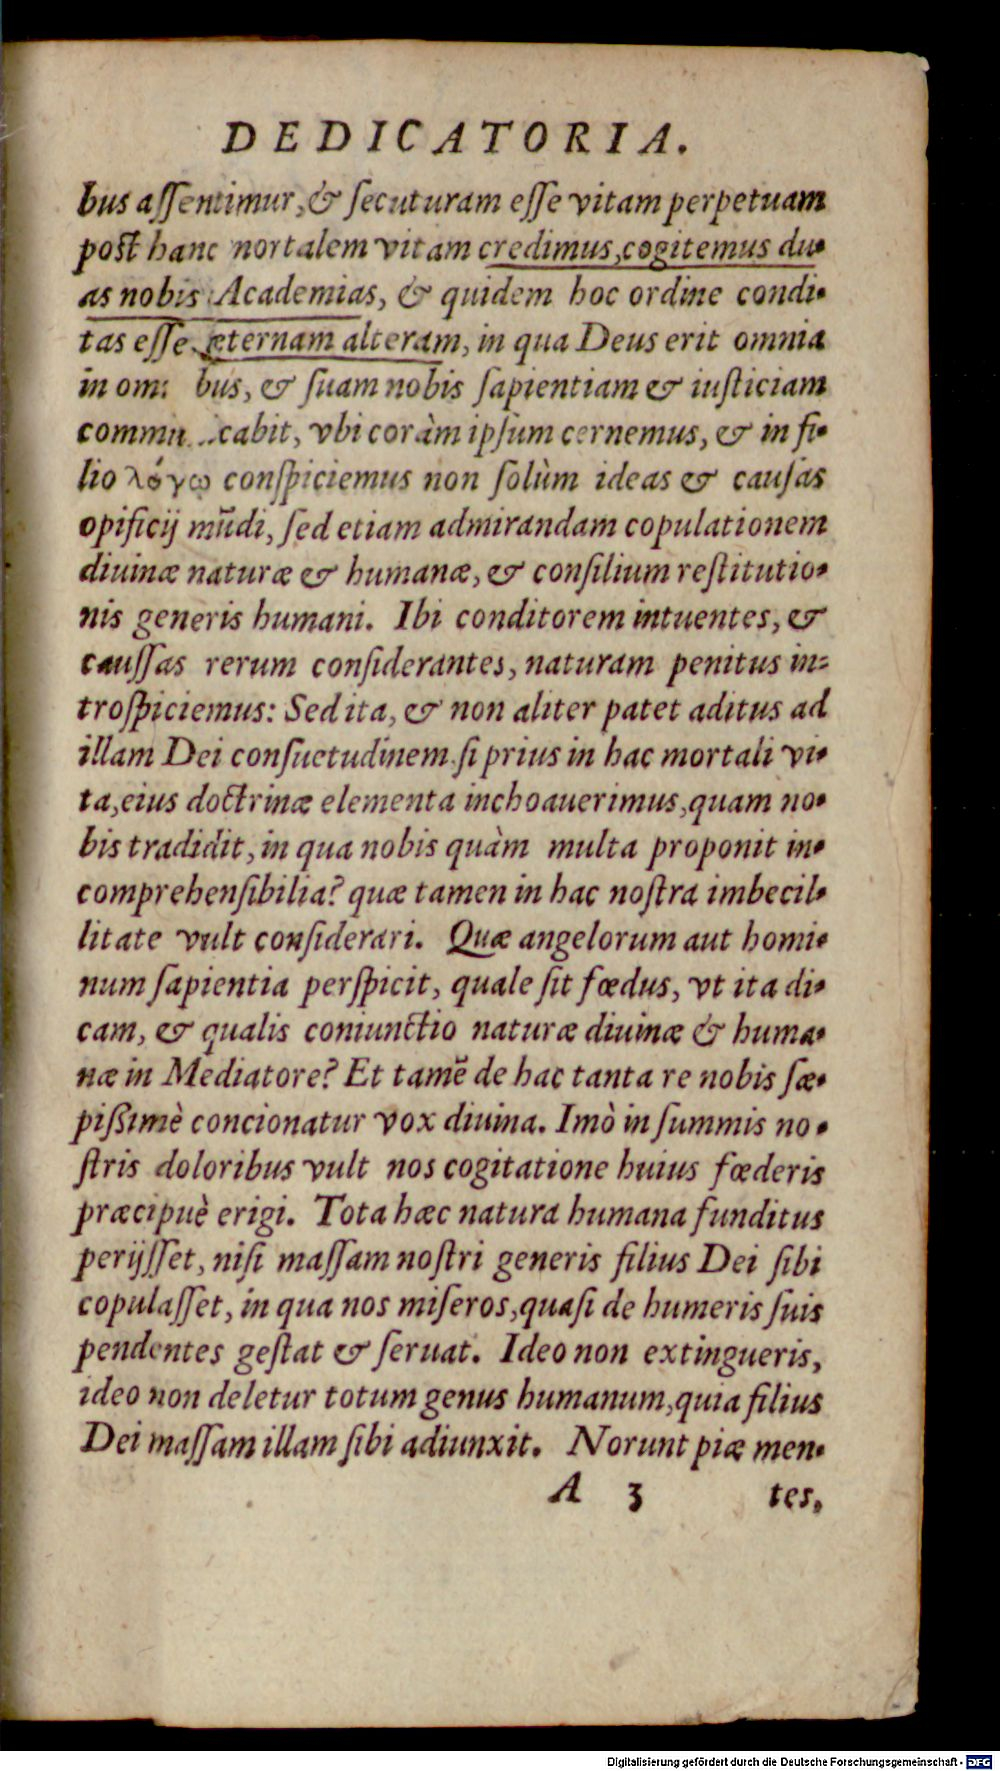 DEDICATORIA.
bus aſſentimur, & ſecuturam eſſe vitam perpetuam
poſt hanc mortalem vitam credimus, cogitemus du-
as nobis Academias, & quidem hoc ordine condi-
tas eſſe, æternam alteram, in qua Deus erit omnia
in omnibus, & ſuam nobis ſapientiam & iuſticiam
communicabit, vbi coràm ipſùm cernemus, & in fi-
lio λόγω conſpiciemus non ſolùm ideas & cauſas
opificij mūdi, ſed etiam admirandam copulationem
diuinæ naturæ & humanæ, & conſilium reſtitutio-
nis generis humani. Ibi conditorem intuentes, &
cauſſas rerum conſiderantes, naturam penitus in-
troſpiciemus: Sed ita, & non aliter patet aditus ad
illam Dei conſuetudinem ſi prius in hac mortali vi-
ta, eius doctrinæ elementa inchoauerimus, quam no-
bis tradidit, in qua nobis quàm multa proponit in-
comprehenſibilia? quæ tamen in hac noſtra imbecil-
litate vult conſiderari. Quæ angelorum aut homi-
num ſapientia perſpicit, quale ſit fœdus, vt ita di-
cam, & qualis coniunctio naturæ diuinæ & huma-
næ in Mediatore? Et tamē de hac tanta re nobis ſæ-
pißimè concionatur vox diuina. Imò in ſummis no-
ſtris doloribus vult nos cogitatione huius fœderis
præcipuè erigi. Tota hæc natura humana funditus
perijſſet, niſi maſſam noſtri generis filius Dei ſibi
copulaſſet, in qua nos miſeros, quaſi de humeris ſuis
pendentes geſtat & ſeruat. Ideo non extingueris,
ideo non deletur totum genus humanum, quia filius
Dei maſſam illam ſibi adiunxit. Norunt piæ men-
A 3 tes,
Digitalisierung gefördert durch die Deutsche Forschungsgemeinschaft - DFG